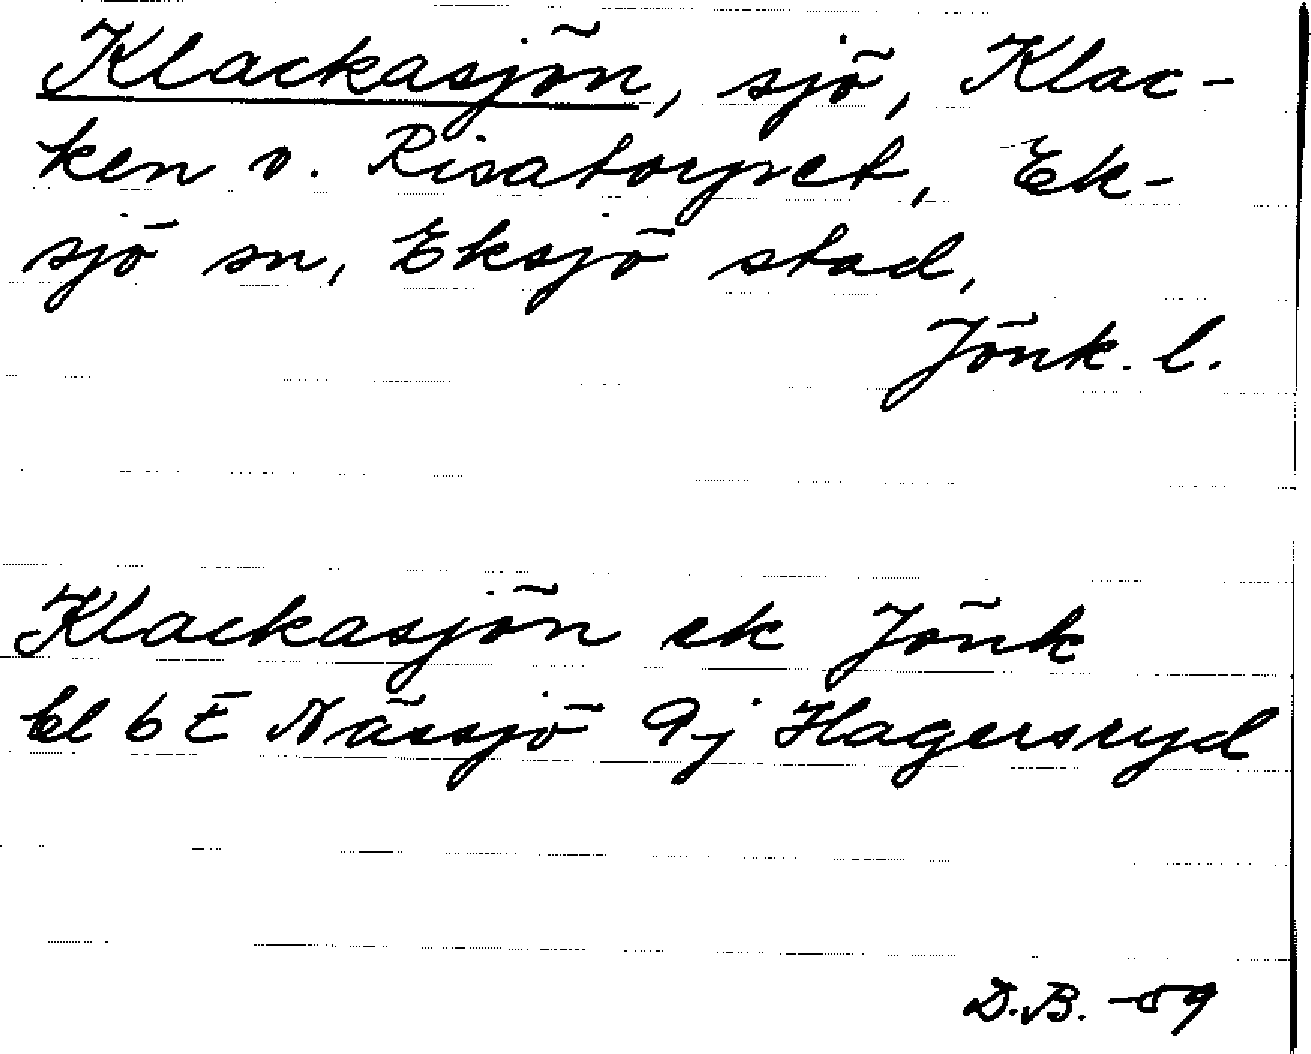 Klackasjön, sjö, Klac-
ken o. Risatorpet, Ek-
sjö sn, Eksjö stad,
Jönk. l.
Klackasjön ek Jönk
bl 6 E Nässjö 9j Hagersryd
D.B. -59